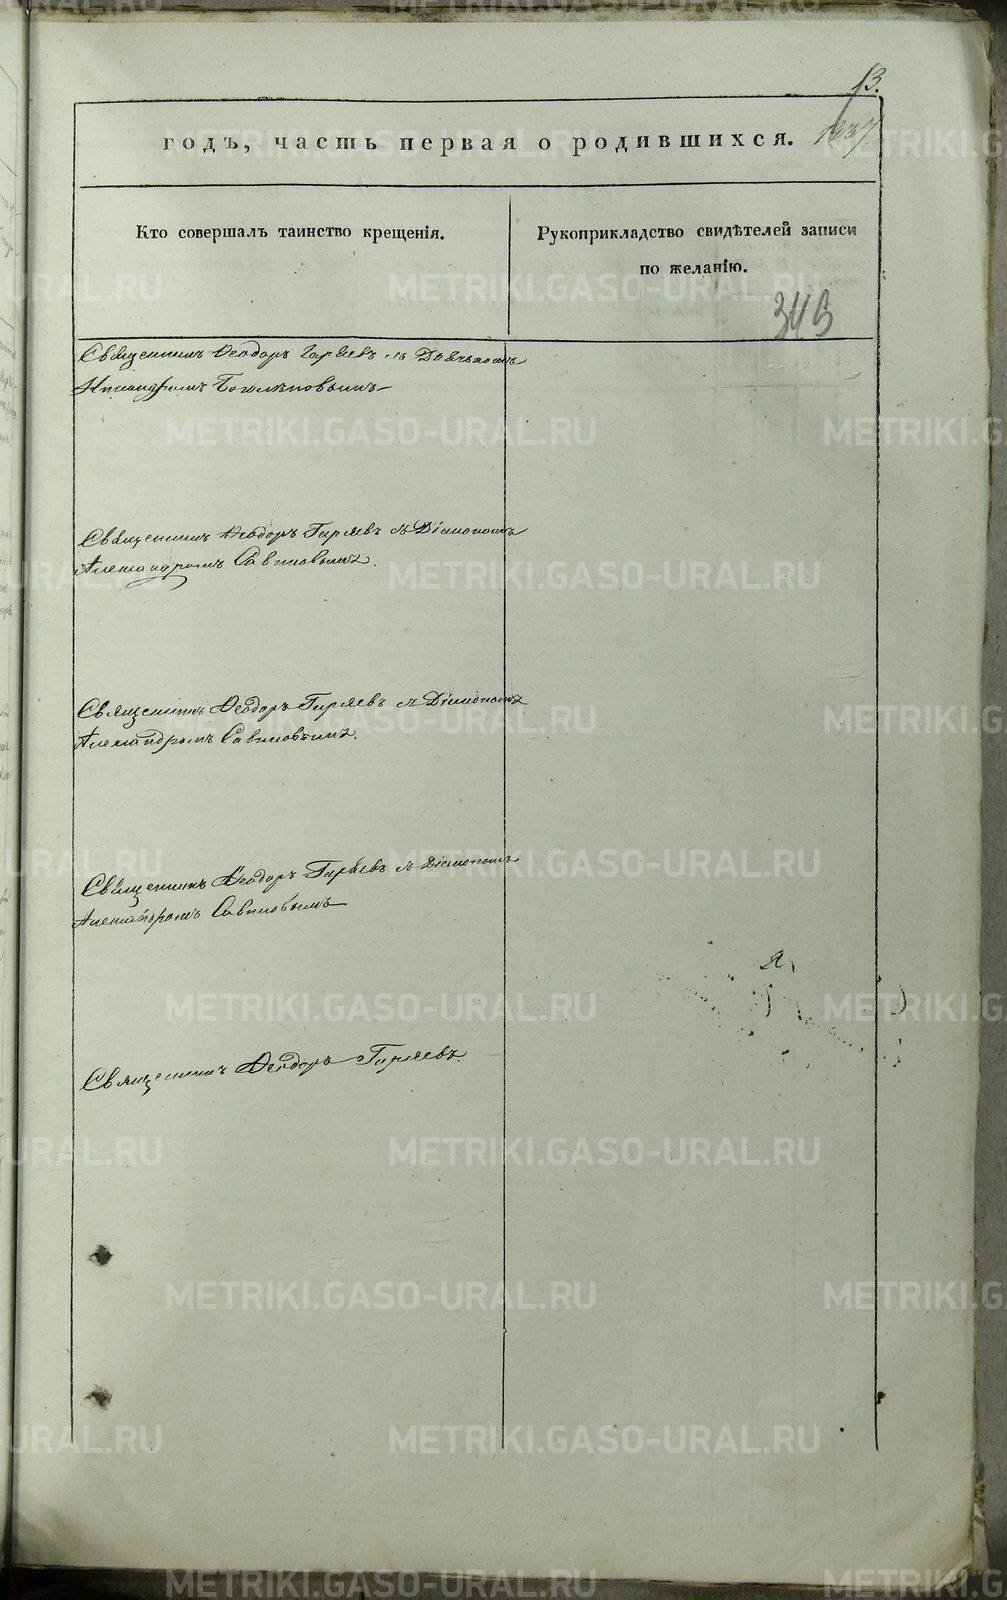 13.
1837
годъ, часть первая о родившихся.
Кто совершалъ таинство крещенія.
Рукоприкладство свидѣтелей записи
по желанію.
343
Священникъ Ѳеодоръ Гаряевъ съ Дьячкомъ
Никандромъ Боголѣповымъ
Священникъ Ѳеодоръ Гаряевъ съ Діакономъ
Александромъ Савиновымъ.
Священникъ Ѳеодоръ Гаряевъ съ Діакономъ
Александромъ Савиновымъ.
Священникъ Ѳеодоръ Гаряевъ съ Діакономъ
Александромъ Савиновымъ
Священникъ Ѳеодоръ Гаряевъ
METRIKI.GASO-URAL.RU